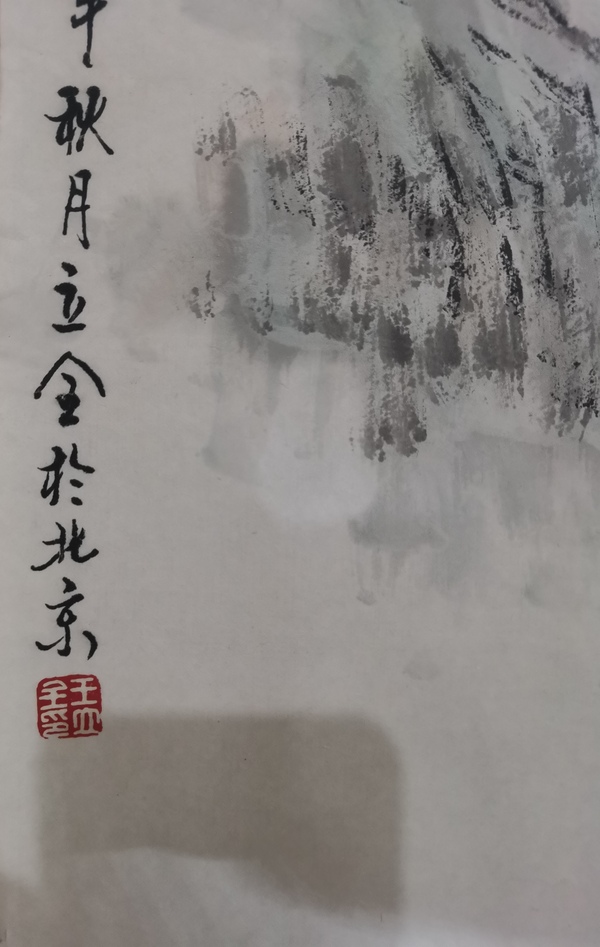 秋月立全於北京
王立全印